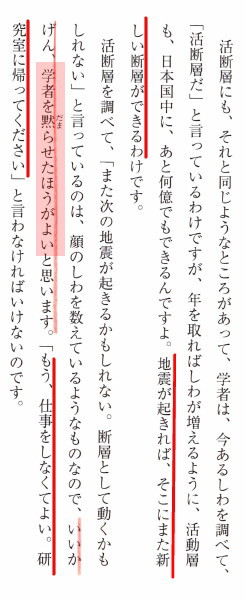 活断層にも、それと同じようなところがあって、学者は、今あるしわを調べて、
「活断層だ」と言っているわけですが、年を取ればしわが増えるように、活動層
も、日本国中に、あと何億でもできるんですよ。地震が起きれば、そこにまた新
しい断層ができるわけです。
活断層を調べて、「また次の地震が起きるかもしれない。断層として動くかも
しれない」と言っているのは、顔のしわを数えているようなものなので、いいか
げん、学者を黙らせたほうがよいと思います。「もう、仕事をしなくてよい。研
だま
究室に帰ってください」と言わなければいけないのです。